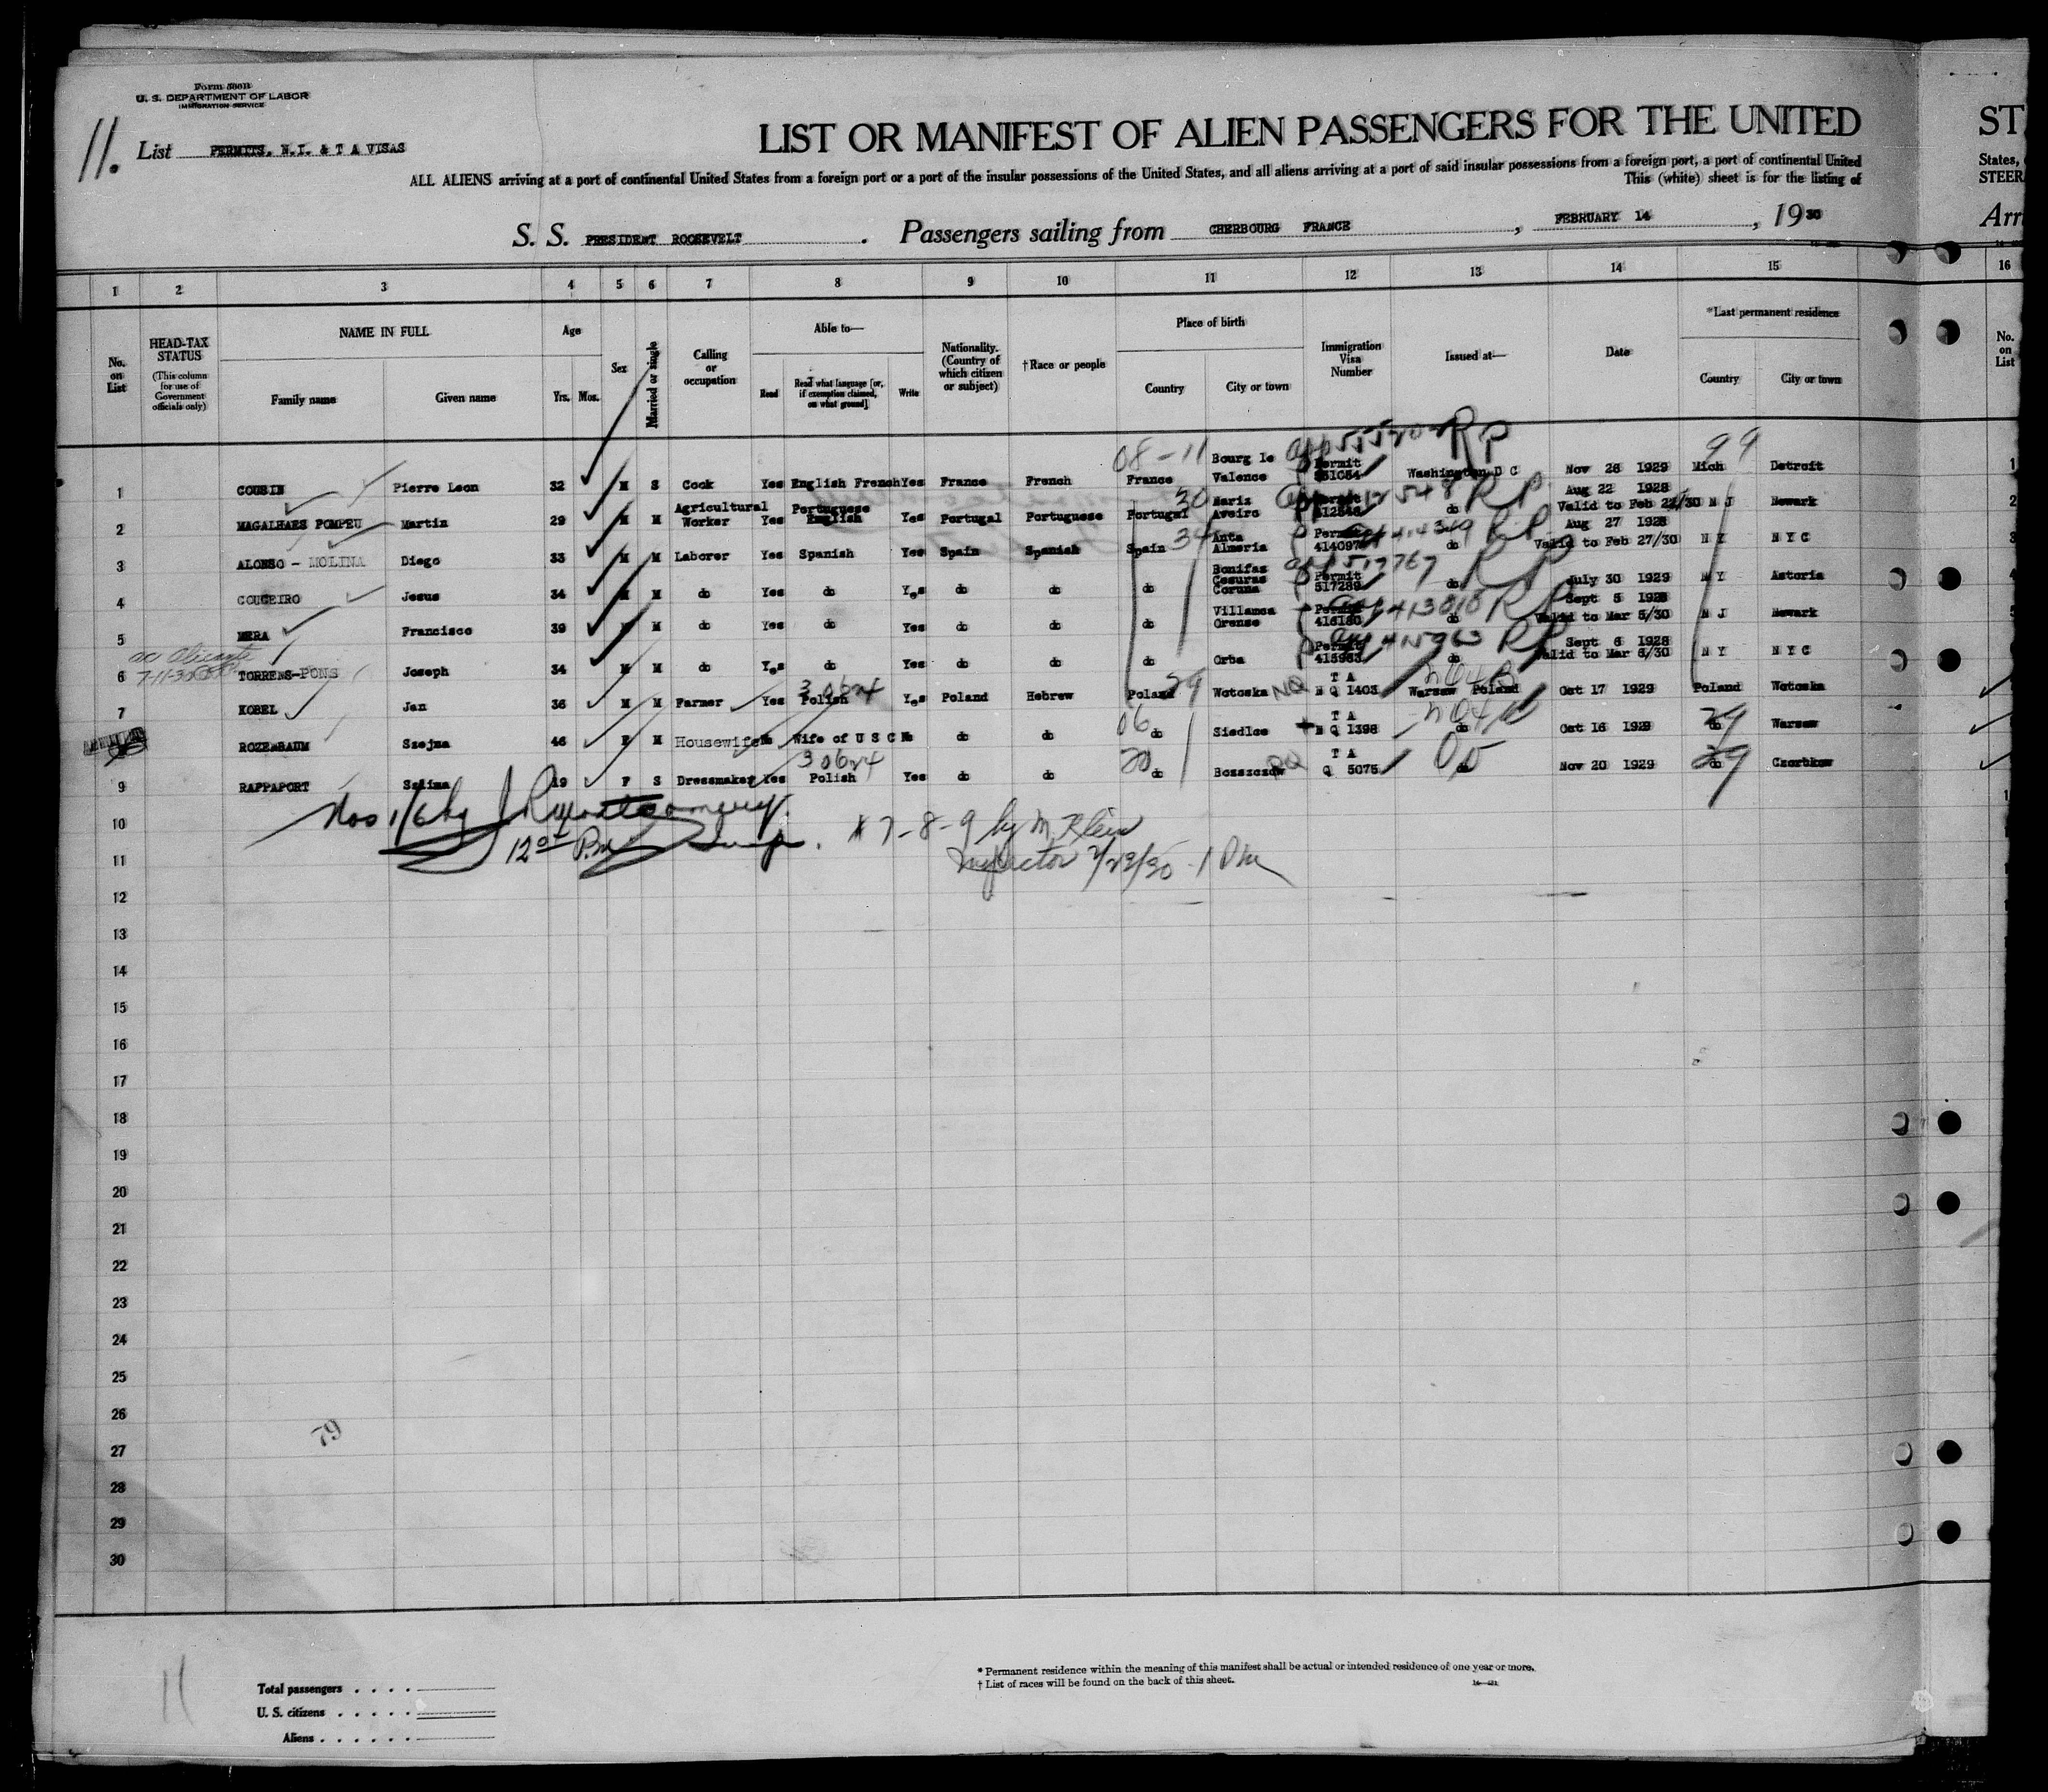 Form 500B
U. S. DEPARTMENT OF LABOR
IMMIGRATION SERVICE
11.
List PERMITS, N.I. & T A VISAS
LIST OR MANIFEST OF ALIEN PASSENGERS FOR THE UNITED
ST
ALL ALIENS arriving at a port of continental United States from a foreign port or a port of the insular possessions of the United States, and all aliens arriving at a port of said insular possessions from a foreign port, a port of continental United
States,
This (white) sheet is for the listing of
STEER
S. S. PRESIDENT ROOSEVELT . Passengers sailing from CHERBOURG FRANCE , FEBRUARY 14 , 1930
Arr
1 2 3 4 5 6 7 8 9 10 11 12 13 14 15 16
No. on List
HEAD-TAX STATUS (This column for use of Government officials only)
NAME IN FULL
Family name Given name
Age
Yrs. Mos.
Sex
Married or single
Calling or occupation
Able to—
Read Read what language [or, if exemption claimed, on what ground] Write
Nationality. (Country of which citizen or subject)
†Race or people
Place of birth
Country City or town
Immigration Visa Number
Issued at—
Date
*Last permanent residence
Country City or town
No. on List
08-11 99
1 COUSIN Pierre Leon 32 M S Cook Yes English French Yes France French France Bourg le Valence Permit RP Washington D C Nov 26 1929 Mich Detroit 1
2 MAGALHAES POMPEU Martin 29 M M Agricultural Worker Yes Portuguese English Yes Portugal Portuguese Portugal 30 Aveiro RP do Aug 22 1928 Valid to Feb 22/30 N J Newark 2
3 ALONSO - MOLINA Diego 33 M M Laborer Yes Spanish Yes Spain Spanish Spain 34 Anta Almeria Permit 414097 RP do Aug 27 1928 Valid to Feb 27/30 N Y N Y C 3
4 COUCEIRO Jesus 34 M M do Yes do Yes do do do Cesuras Coruna Permit 517289 RP do July 30 1929 N Y Astoria 4
5 MERA Francisco 39 M M do Yes do Yes do do do Orense Permit 416180 RP do Sept 5 1928 Valid to Mar 5/30 N J Newark 5
6 TORRENS-PONS Joseph 34 M M do Yes do Yes do do do Orba Permit 415963 RP do Sept 6 1928 Valid to Mar 6/30 N Y N Y C
7 KOBEL Jan 36 M M Farmer Yes Polish 30624 Yes Poland Hebrew Poland 29 Wotoska NQ T A N Q 1403 Warsaw Poland Oct 17 1929 Poland Wotoska
ROZENBAUM Szejna 46 F M Housewife No Wife of U S C No do do 06 do Siedlce T A N Q 1398 do Oct 16 1929 29 Warsaw
9 RAPPAPORT 19 F S Dressmaker Yes Polish 30624 Yes do do 20 do T A Q 5075 do Nov 20 1929 do 29 Czortkow
Nos 1/6 by J R Montgomery.
12 P.M.
# 7-8-9 by M. Klein
Inspector 2/23/30 - 1 PM
10
11
12
13
14
15
16
17
18
19
20
21
22
23
24
25
26
27
28
29
30
79
11
* Permanent residence within the meaning of this manifest shall be actual or intended residence of one year or more.
† List of races will be found on the back of this sheet.
Total passengers . . . .
U. S. citizens . . . . .
Aliens . . . . . .